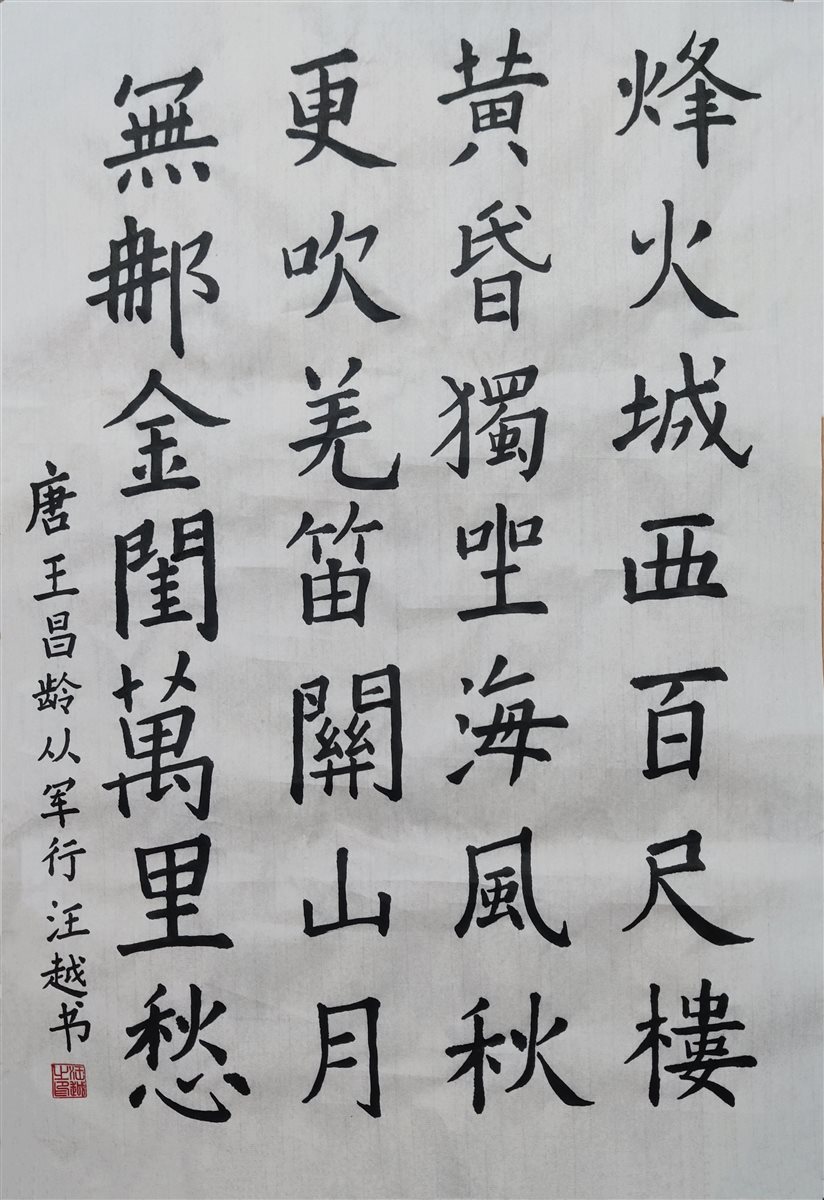 烽火城西百尺樓
黄昏獨坐海風秋
更吹羌笛關山月
無那金閨萬里愁
唐王昌龄从军行汪越书
汪越之印